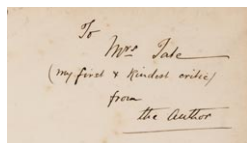 To
Mrs Tate
(my first & kindest critic)
from
the Author